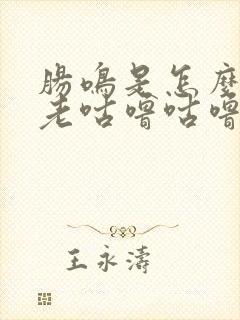 腸鳴是怎麼
老咕嚕咕嚕
王永濤